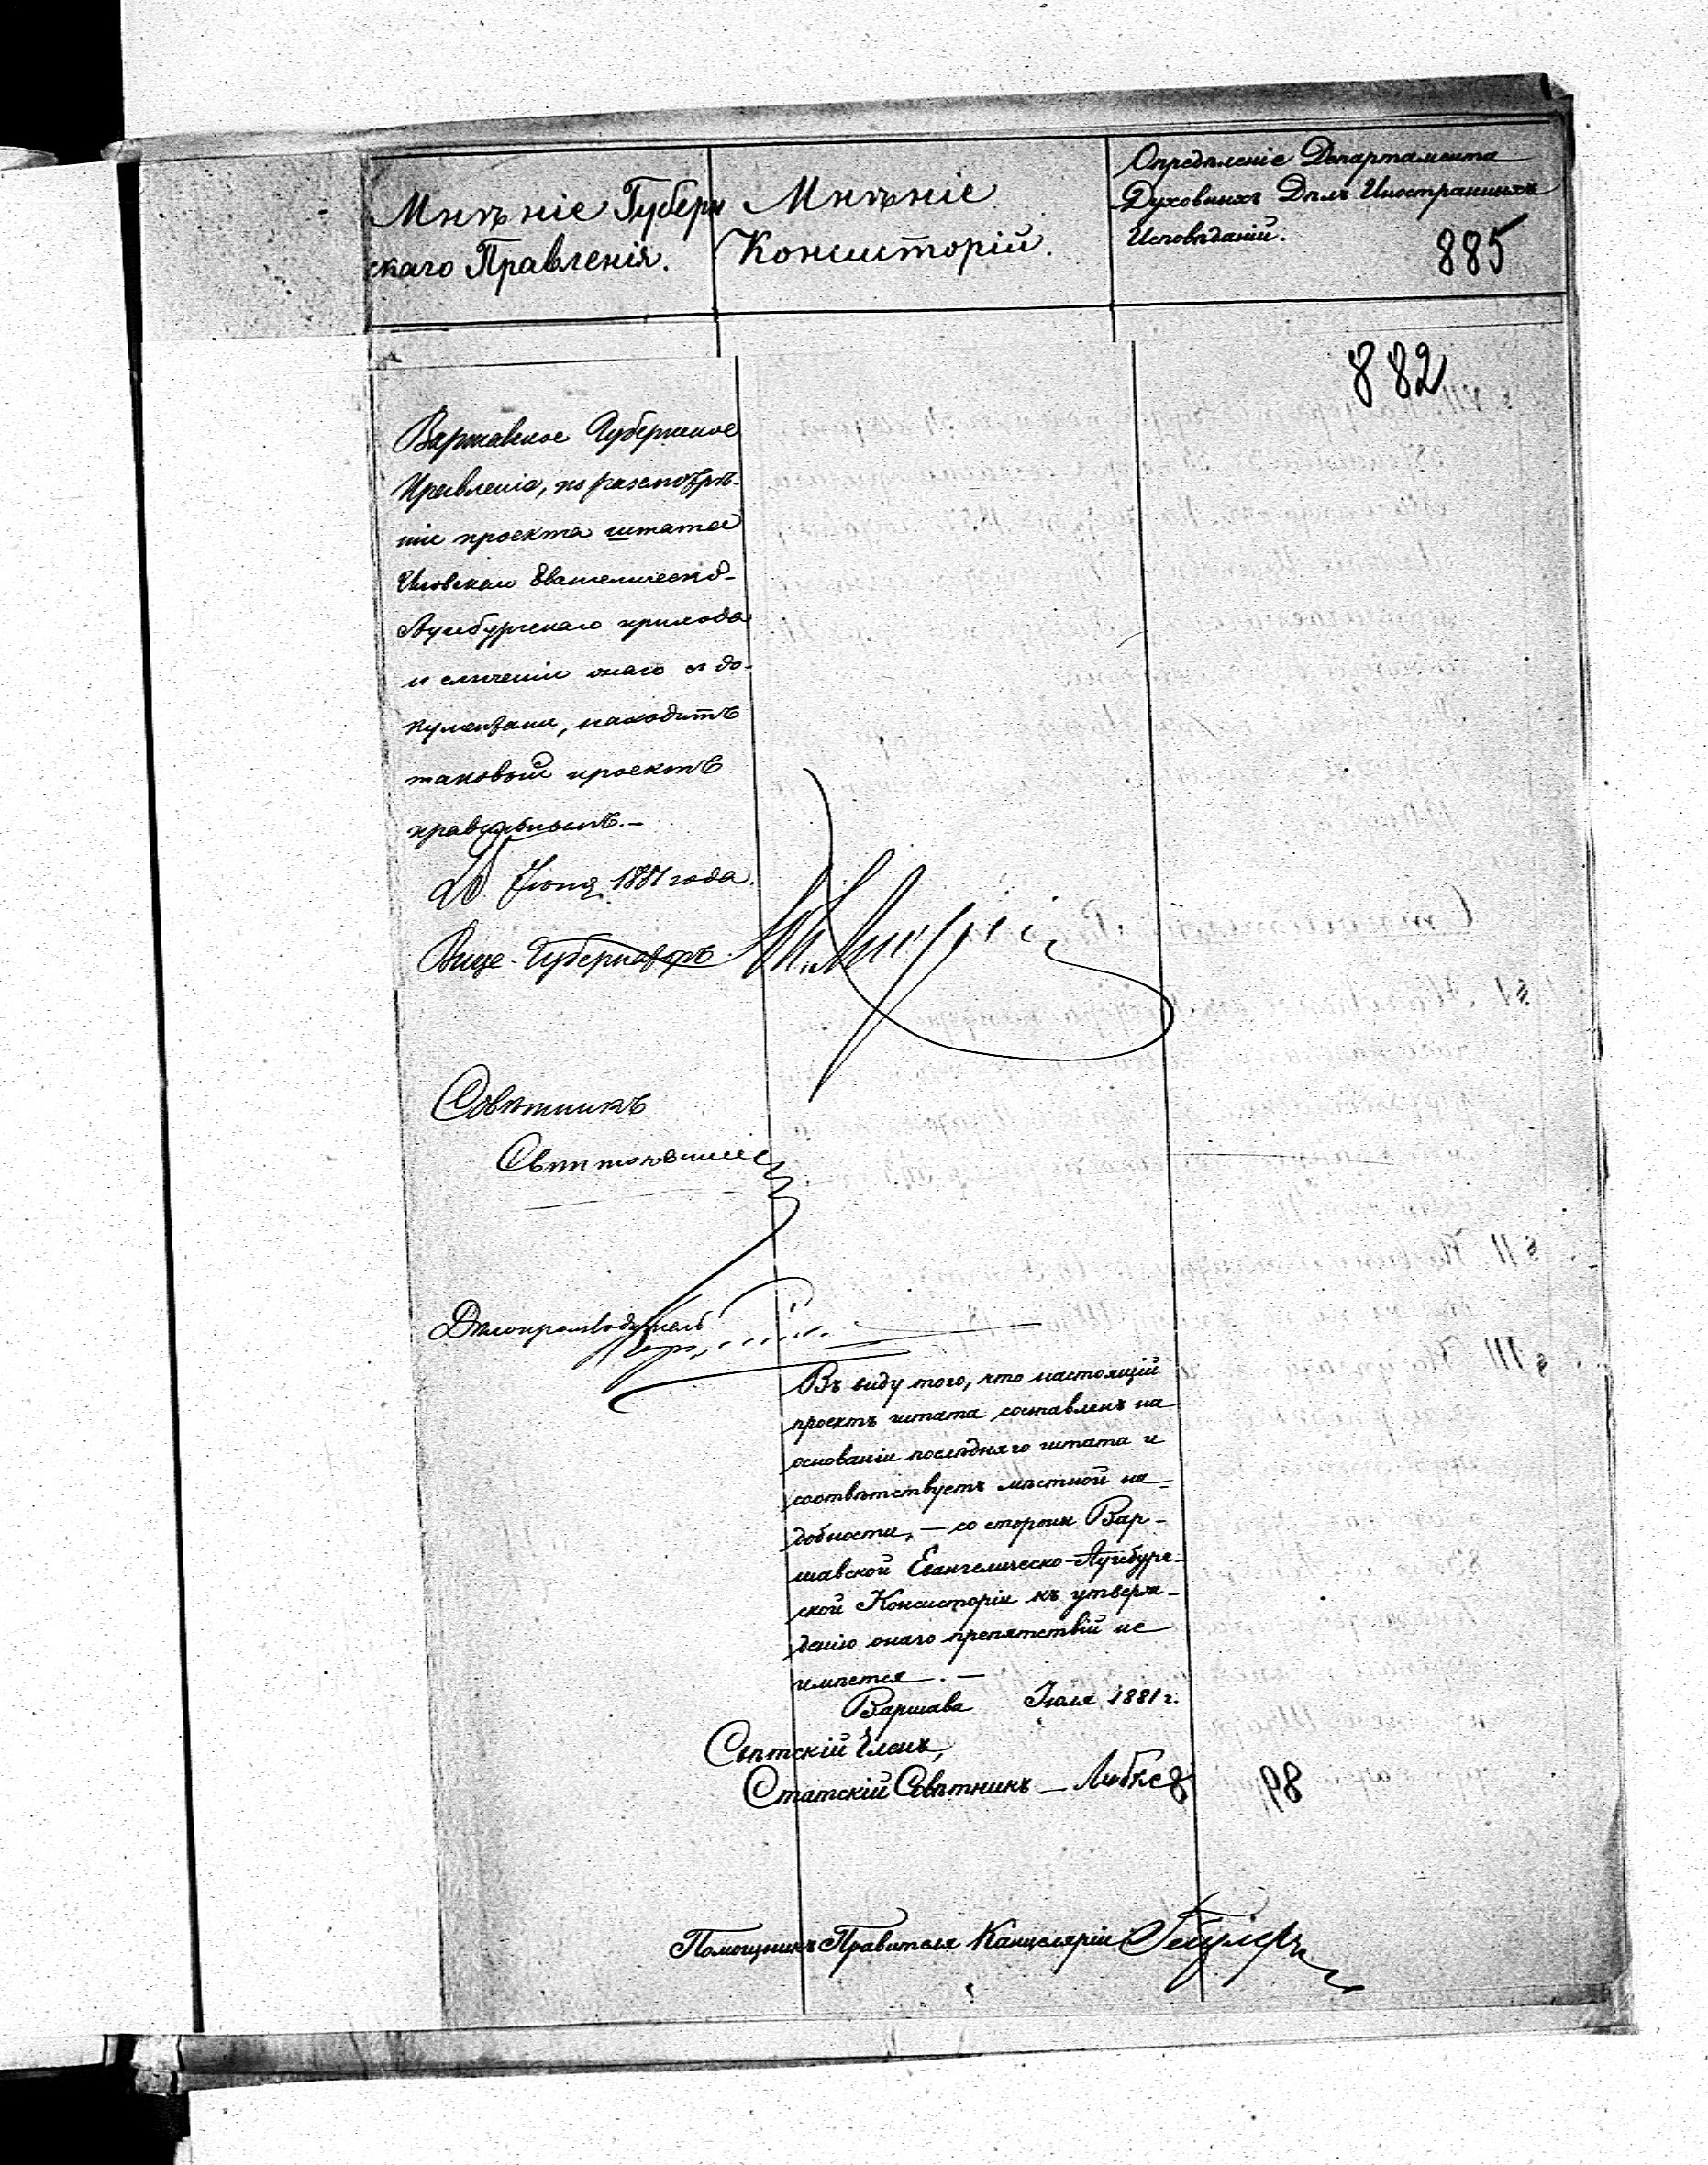 Мнѣніе Губерн
скаго Правленія.
Мнѣніе
Консисторій.
Опредѣленіе Департамента
Духовныхъ Дѣлъ Иностранныхъ
Исповѣданій.
885
882
Варшавское Губернское
Правленіе, по разсмотрѣ-
ніи проекта штата
Евангелическо-
Аугсбургскаго прихода
и сличеніи онаго съ до-
кументами, находитъ
таковый проектъ
правильнымъ.—
Іюня 1881 года.
Вице-Губернаторъ
Совѣтникъ
Дѣлопроизводитель
Въ виду того, что настоящій
проектъ штата составленъ на
основаніи послѣдняго штата и
соотвѣтствуетъ мѣстной на-
добности, — со стороны Вар-
шавской Евангелическо-Аугсбург-
ской Консисторіи къ утверж-
денію онаго препятствій не
имѣется. —
Варшава Іюля 1881 г.
Свѣтскій Членъ,
Статскій Совѣтникъ —
Помощникъ Правителя Канцеляріи